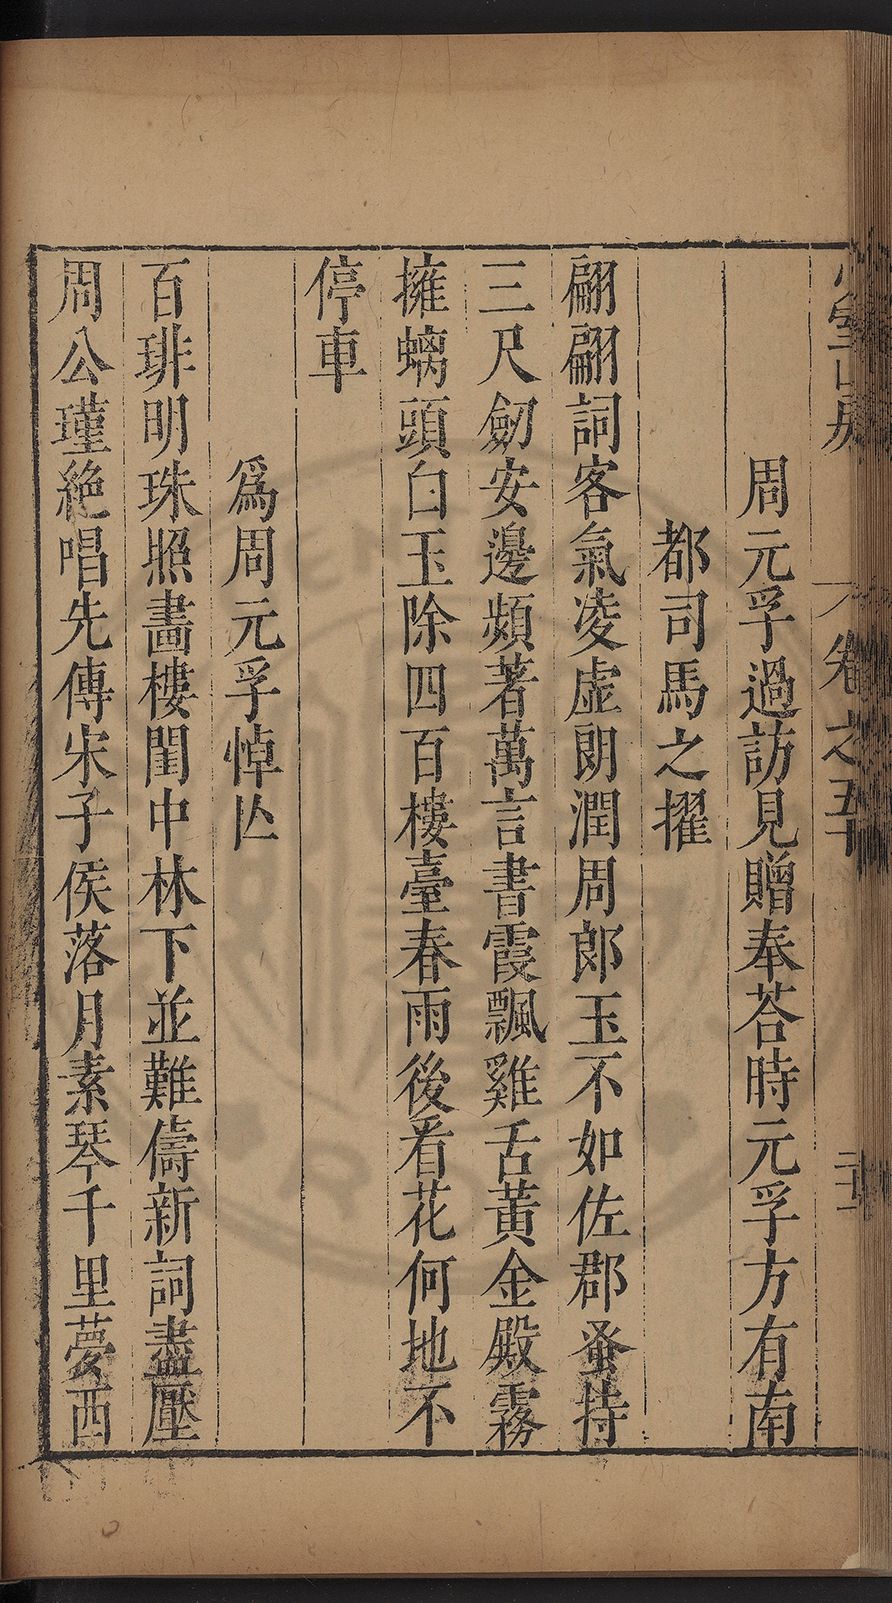 卷之五
周元孚過訪見贈奉荅時元孚方有南
都司馬之擢
翩翩詞客氣凌虛朗潤周郎玉不如佐郡蚤持
三尺劒安邊頻著萬言書霞飄雞舌黃金殿霧
擁螭頭白玉除四百樓臺春雨後看花何地不
停車
爲周元孚悼亾
百琲明珠照畵樓閨中林下並難儔新詞盡壓
周公瑾絶唱先傳宋子侯落月素琴千里夢西